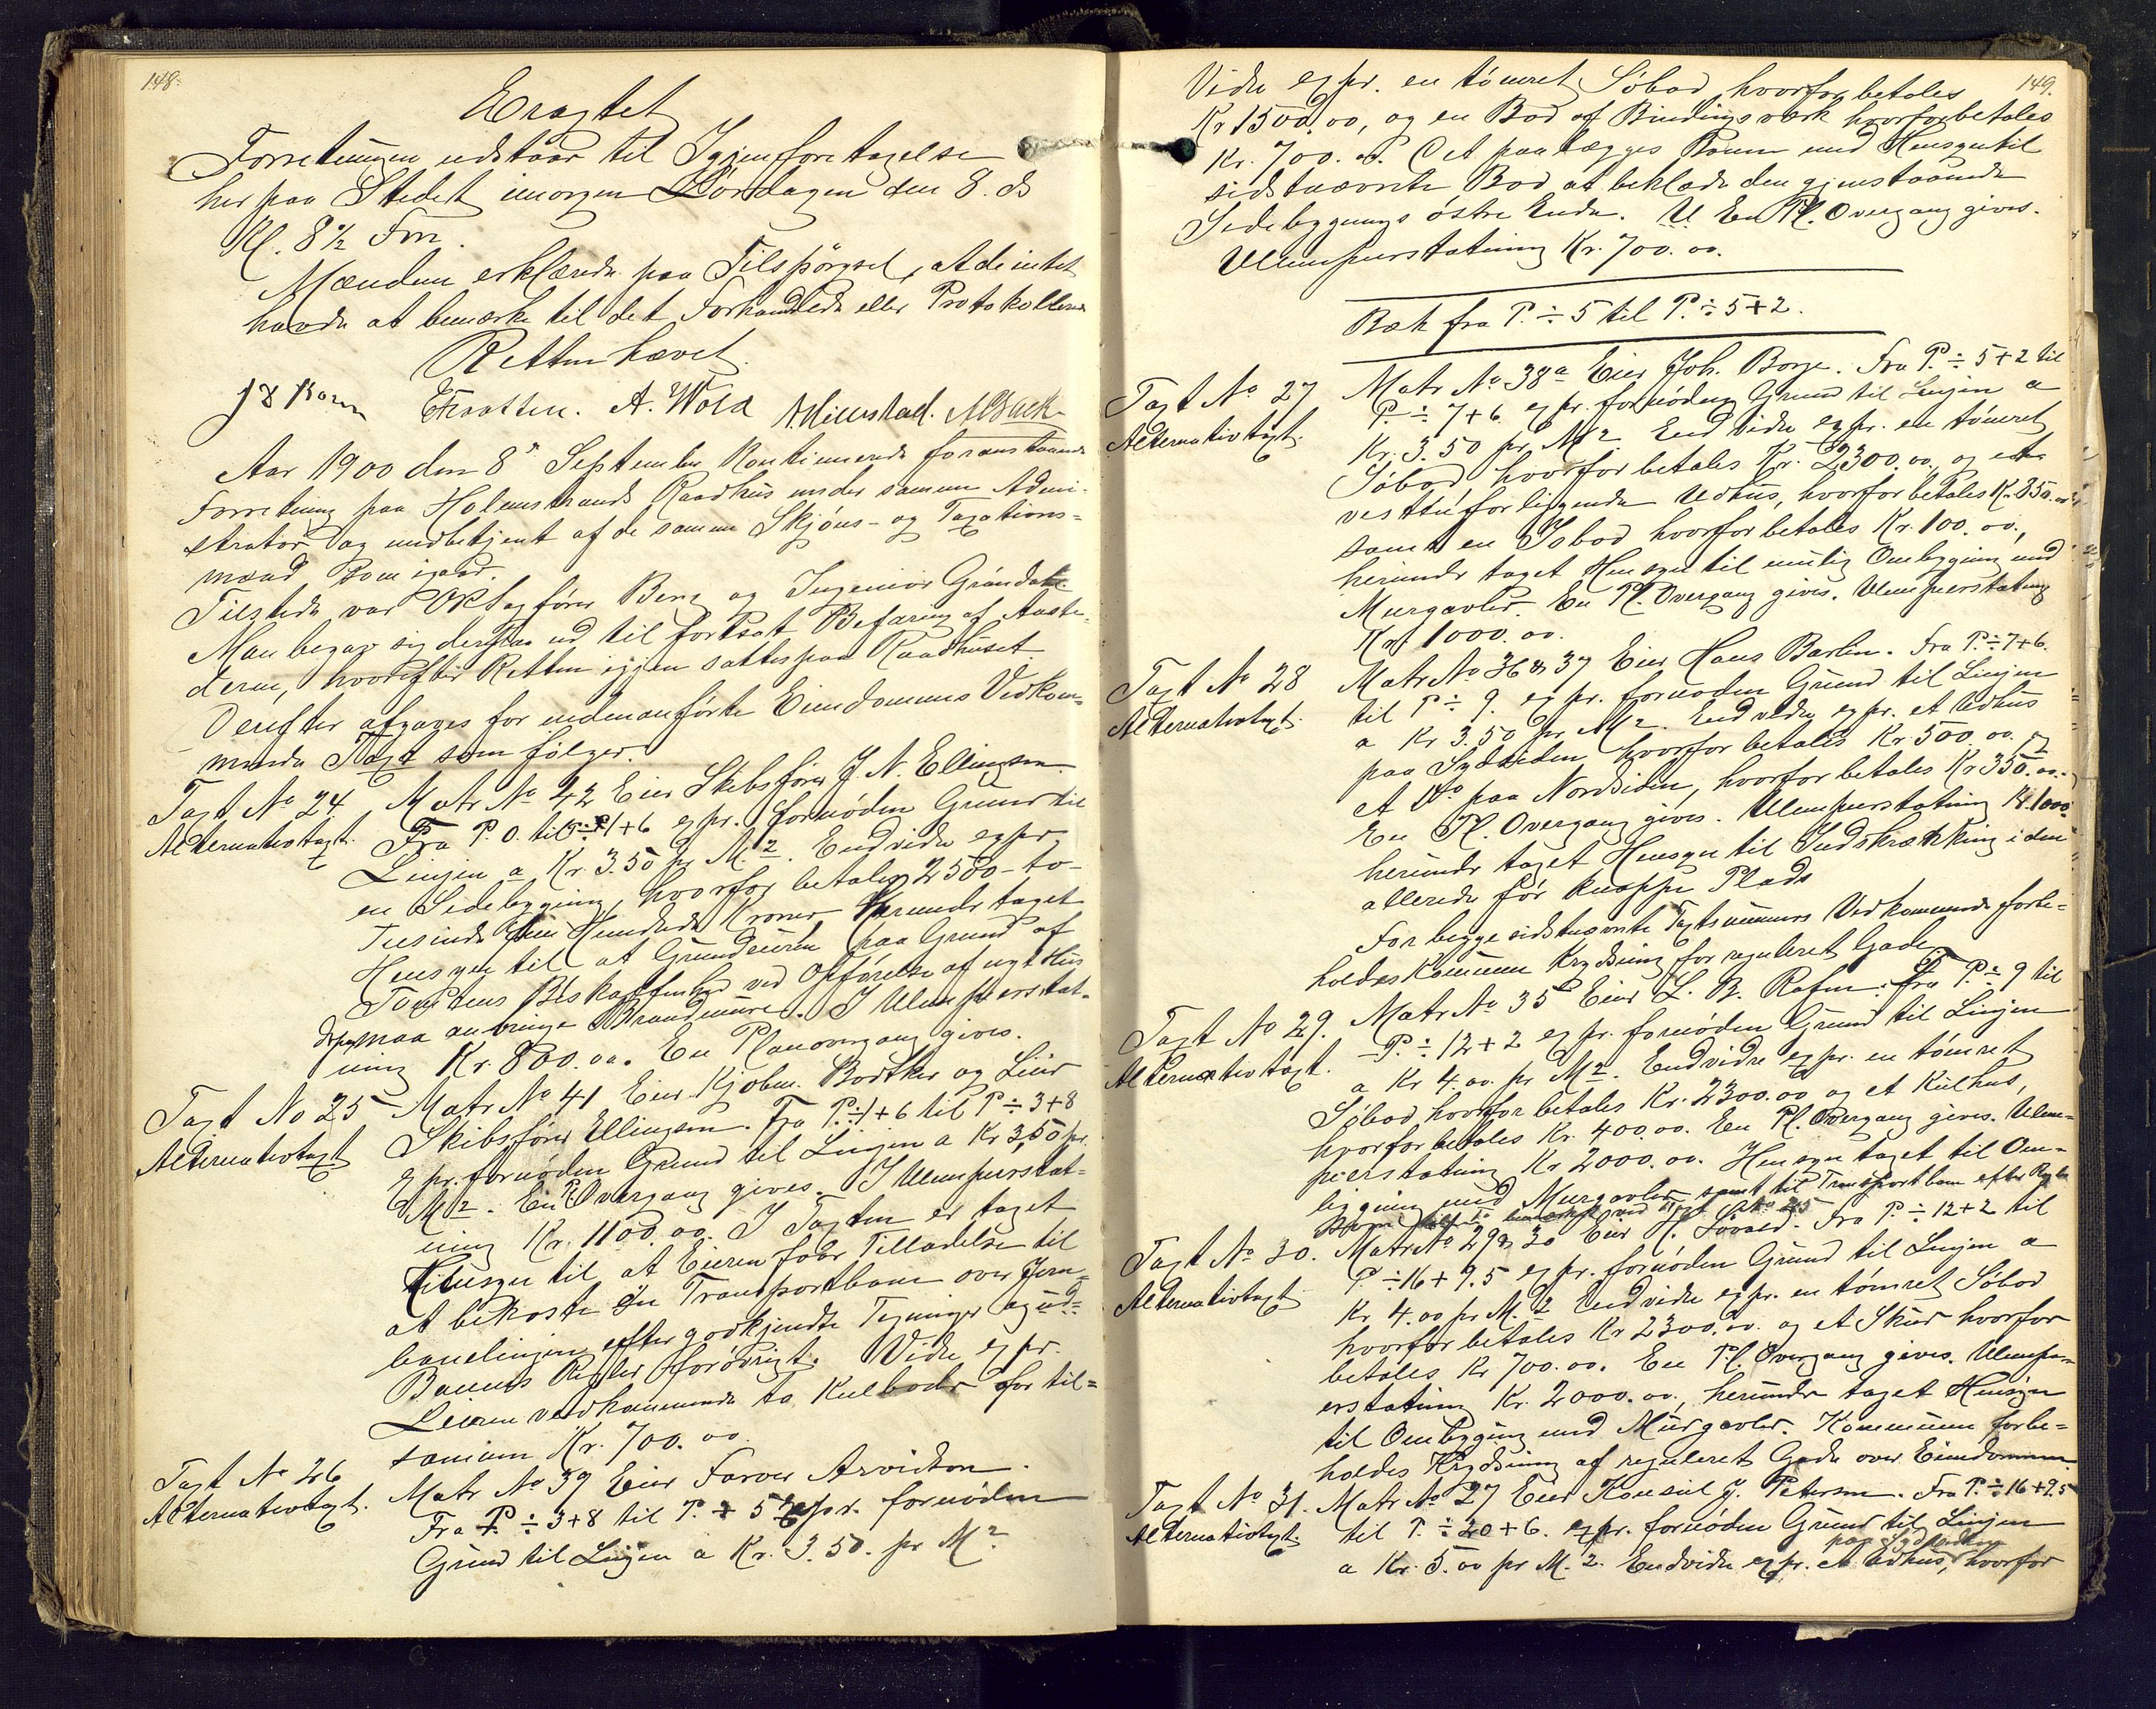 148.
Eragtet
Forretningen udstaar til Igjenforetagelse
her paa Stedet imorgen Lørdagen den 8. ds
Kl. 8½ Fm.
Mændene erklærede paa Tilspørgsel, at de intet
havde at bemærke til det Forhandlede eller Protokollerede
Retten hævet.
A. Wold
Aar 1900 den 8de September kontinueredes foranstaaende
Forretning paa Holmestrands Raadhus under samme Admini-
strator og medbetjent af de samme Skjöns- og Taxations-
mænd som igaar.
Tilstede var O.R.Sagfører Berg og Ingeniør Gröndahl
Man begav sig derfra ud til fortsat Befaring af Aaste-
derne, hvorefter Retten igjen sattes paa Raadhuset
Derefter afgaves for nedenanförte Eiendommes Vedkom-
mende Taxt som følger.
Taxt No 24 Matr No 42 Eier Skibsfører J. N. Ellingsen
Alternativtaxt. Fra P. 0. til P ÷ 1+6 expr. fornöden Grund til
Linjen a Kr. 3.50 pr M.2. Endvidere expr.
en Sidebygning, hvorfor betales 2500 - to -
Tusinde fem Hundrede Kroner Herunder taget
Hensyn til at Grundeieren paa Grund af
Tomtens Beskaffenhed ved Opførelse af nyt Hus
maa anbringe Brandmure. I Ulempeerstat-
ning Kr. 800.00. En Planovergang gives.
Taxt No 25 Matr No 41 Eier Kjøbm. Bödtker og Leier
Alternativtaxt Skibsfører Ellingsen. Fra P. ÷ 1+6 til P ÷ 3+8
expr. fornöden Grund til Linjen a Kr 3,50 pr.
M2. En Pl. Overgang gives. I Ulempeerstat-
ning Kr. 1100.00. I Taxten er taget
Hensyn til at Eieren faar Tilladelse til
at bekoste en Transportbane over Jern-
banelinjen efter godkjendte Tegninger og ud-
Banens Regler forövrigt. Videre expr.
Leieren vedkommende to Kulboder for til-
sammen Kr. 700.00
Taxt No 26 Matr No 39 Eier Farver Arvidson.
Alternativtaxt. Fra P ÷ 3+8 til P. ÷ 5 expr. fornöden
Grund til Linjen a Kr. 3.50. pr M2
149.
Videre expr. en tömret Söbod, hvorfor betales
Kr 1500.00, og en Bod af Bindingsværk hvorfor betales
Kr. 700.00. Det paalægges Banen med Hensyn til
sidstnævnte Bod at beklæde den gjenstaaende
Sidebygnings östre Ende. En Pl. Overgang gives.
Ulempeerstatning Kr. 700.00.
Bæk fra P. ÷ 5 til P. ÷ 5+2.
Taxt No 27 Matr No 38a Eier Joh. Borge. Fra P. ÷ 5+2 til
P. ÷ 7+6 expr. fornöden Grund til Linjen a
Alternativtaxt. Kr. 3.50 pr. M2. Endvidere expr. en tömret
Söbod hvorfor betales Kr. 2300.00, og et
vestenfor liggende Udhus, hvorfor betales Kr. 350.00
samt en Isbod hvorfor betales Kr. 100.00,
herunder taget Hensyn til mulig Ombygning med
Murgavler. En Pl. Overgang gives. Ulempeerstatning
Kr. 1000.00.
Taxt No 28 Matr No 36 & 37 Eier Hans Barlien. Fra P. ÷ 7+6.
Alternativtaxt. til P ÷ 9. expr. fornöden Grund til Linjen
a Kr 3.50 pr M2. Endvidere expr. et Udhus
paa Sydsiden hvorfor betales Kr. 500.00 og
et Do paa Nordsiden, hvorfor betales Kr 350.00.
En Pl. Overgang gives. Ulempeerstatning Kr. 1000
herunder taget Hensyn til Indskrænkning i den
allerede för knappe Plads
For begge sidstnævnte Taxtnummers Vedkommende forbe-
holdes Kommunen Krydsning for reguleret Gade
Taxt No 29. Matr No 35 Eier L. B. Rafen. Fra P. ÷ 9 til
Alternativtaxt. P. ÷ 12+2 expr. fornöden Grund til Linjen
a Kr 4.00 pr M2. Endvidre expr. en tömret
Söbod hvorfor betales Kr. 2300.00 og et Kulhus,
hvorfor betales Kr. 400.00. En Pl. Overgang gives. Ulem-
peerstatning Kr 2000.00. Hensyn taget til Om-
bygning med Murgavler samt til Transportbane efter Regler
som bemærket ved Taxt No 25
Taxt No 30. Matr No 29 & 30 Eier H. Sövold. Fra P. ÷ 12+2 til
Alternativtaxt P. ÷ 16+9.5 expr. fornöden Grund til Linjen a
Kr 4.00 pr M.2 Endvidere expr. en tömret Söbod
hvorfor betales Kr 2300.00. og et Skur hvorfor
betales Kr 700.00. En Pl. Overgang gives. Ulempe-
erstatning Kr. 2000.00, herunder taget Hensyn
til Ombygning med Murgavler. Kommunen forbe-
holdes Krydsning af reguleret Gade over Eiendommen
Taxt No 31. Matr No 27 Eier Konsul J. Petersen. Fra P. ÷ 16+9.5
Alternativtaxt. til P. ÷ 20+6. expr. fornöden Grund til Linjen
a Kr. 5.00 pr M.2. Endvidere expr. et Udhus paa Sydsiden, hvorfor